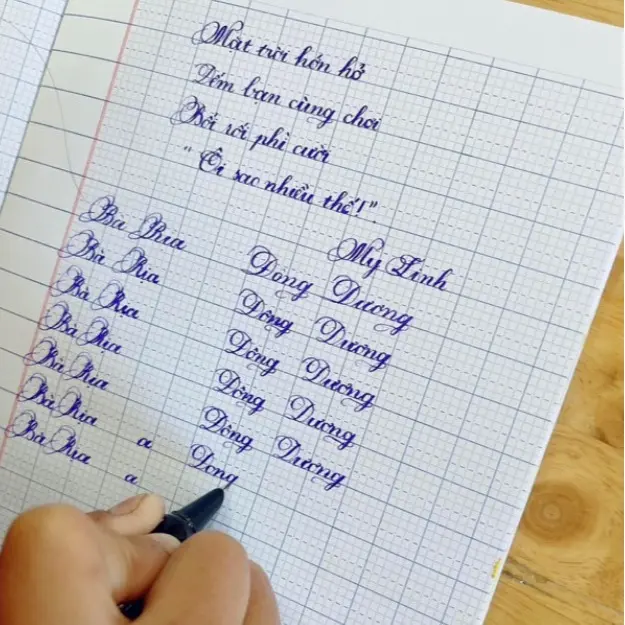 Mặt trời hớn hở
Đếm bạn cùng chơi
Bối rối phì cười
" Ôi sao nhiều thế!"
Mỹ Linh
Bà Rịa Đông Dương
Bà Rịa Đông Dương
Bà Rịa Đông Dương
Bà Rịa Đông Dương
Bà Rịa Đông Dương
Bà Rịa a Dong
Bà Rịa a